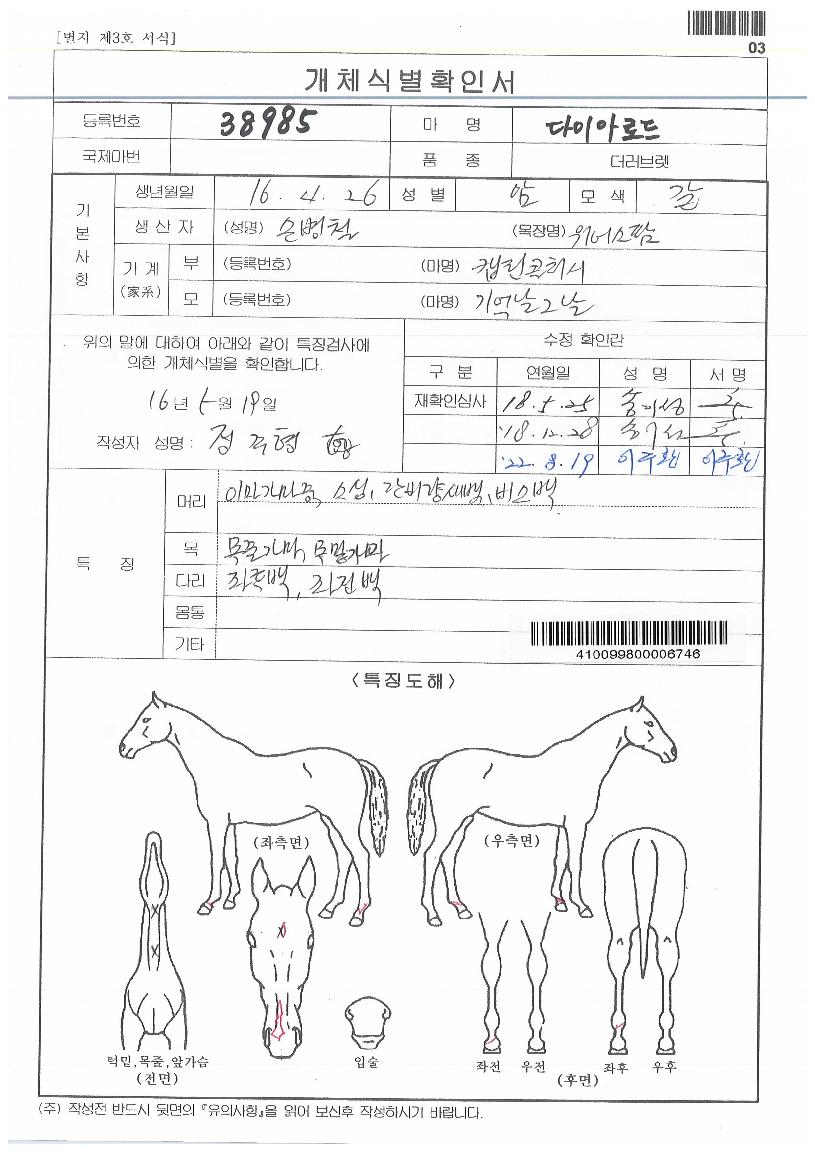 [별지 제3호 서식]
03
개체식별확인서
등록번호 38985 마 명 다이아로드
국제마번 품 종 더러브렛
기본사항
생년월일 16. 4. 26 성 별 암 모 색 갈
생산자 (성명) 손병철 (목장명) 위너스팜
기계(家系) 부 (등록번호) (마명) 캡틴콕히시
모 (등록번호) (마명) 기억날그날
위의 말에 대하여 아래와 같이 특징검사에
의한 개체식별을 확인합니다.
16년 5월 19일
작성자 성명 :
수정 확인란
구 분 연월일 성 명 서 명
재확인심사 18.5.25
'18.12.28
'22.8.19
특 징
머리 이마가마중, 소성, 비스백
목 목줄가마, 목밑가마
다리 좌후백, 좌전백
몸통
기타
410099800006746
<특징도해>
(좌측면) (우측면)
턱밑,목줄,앞가슴
(전면)
입술
좌전 우전 좌후 우후
(후면)
(주) 작성전 반드시 뒷면의 『유의사항』을 읽어 보신후 작성하시기 바랍니다.